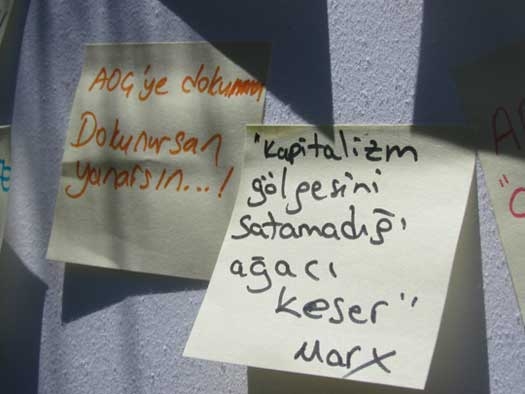 AOÇ'ye
Dokunursan
yanarsın...!
"Kapitalizm
gölgesini
satamadığı
ağacı
keser"
Marx